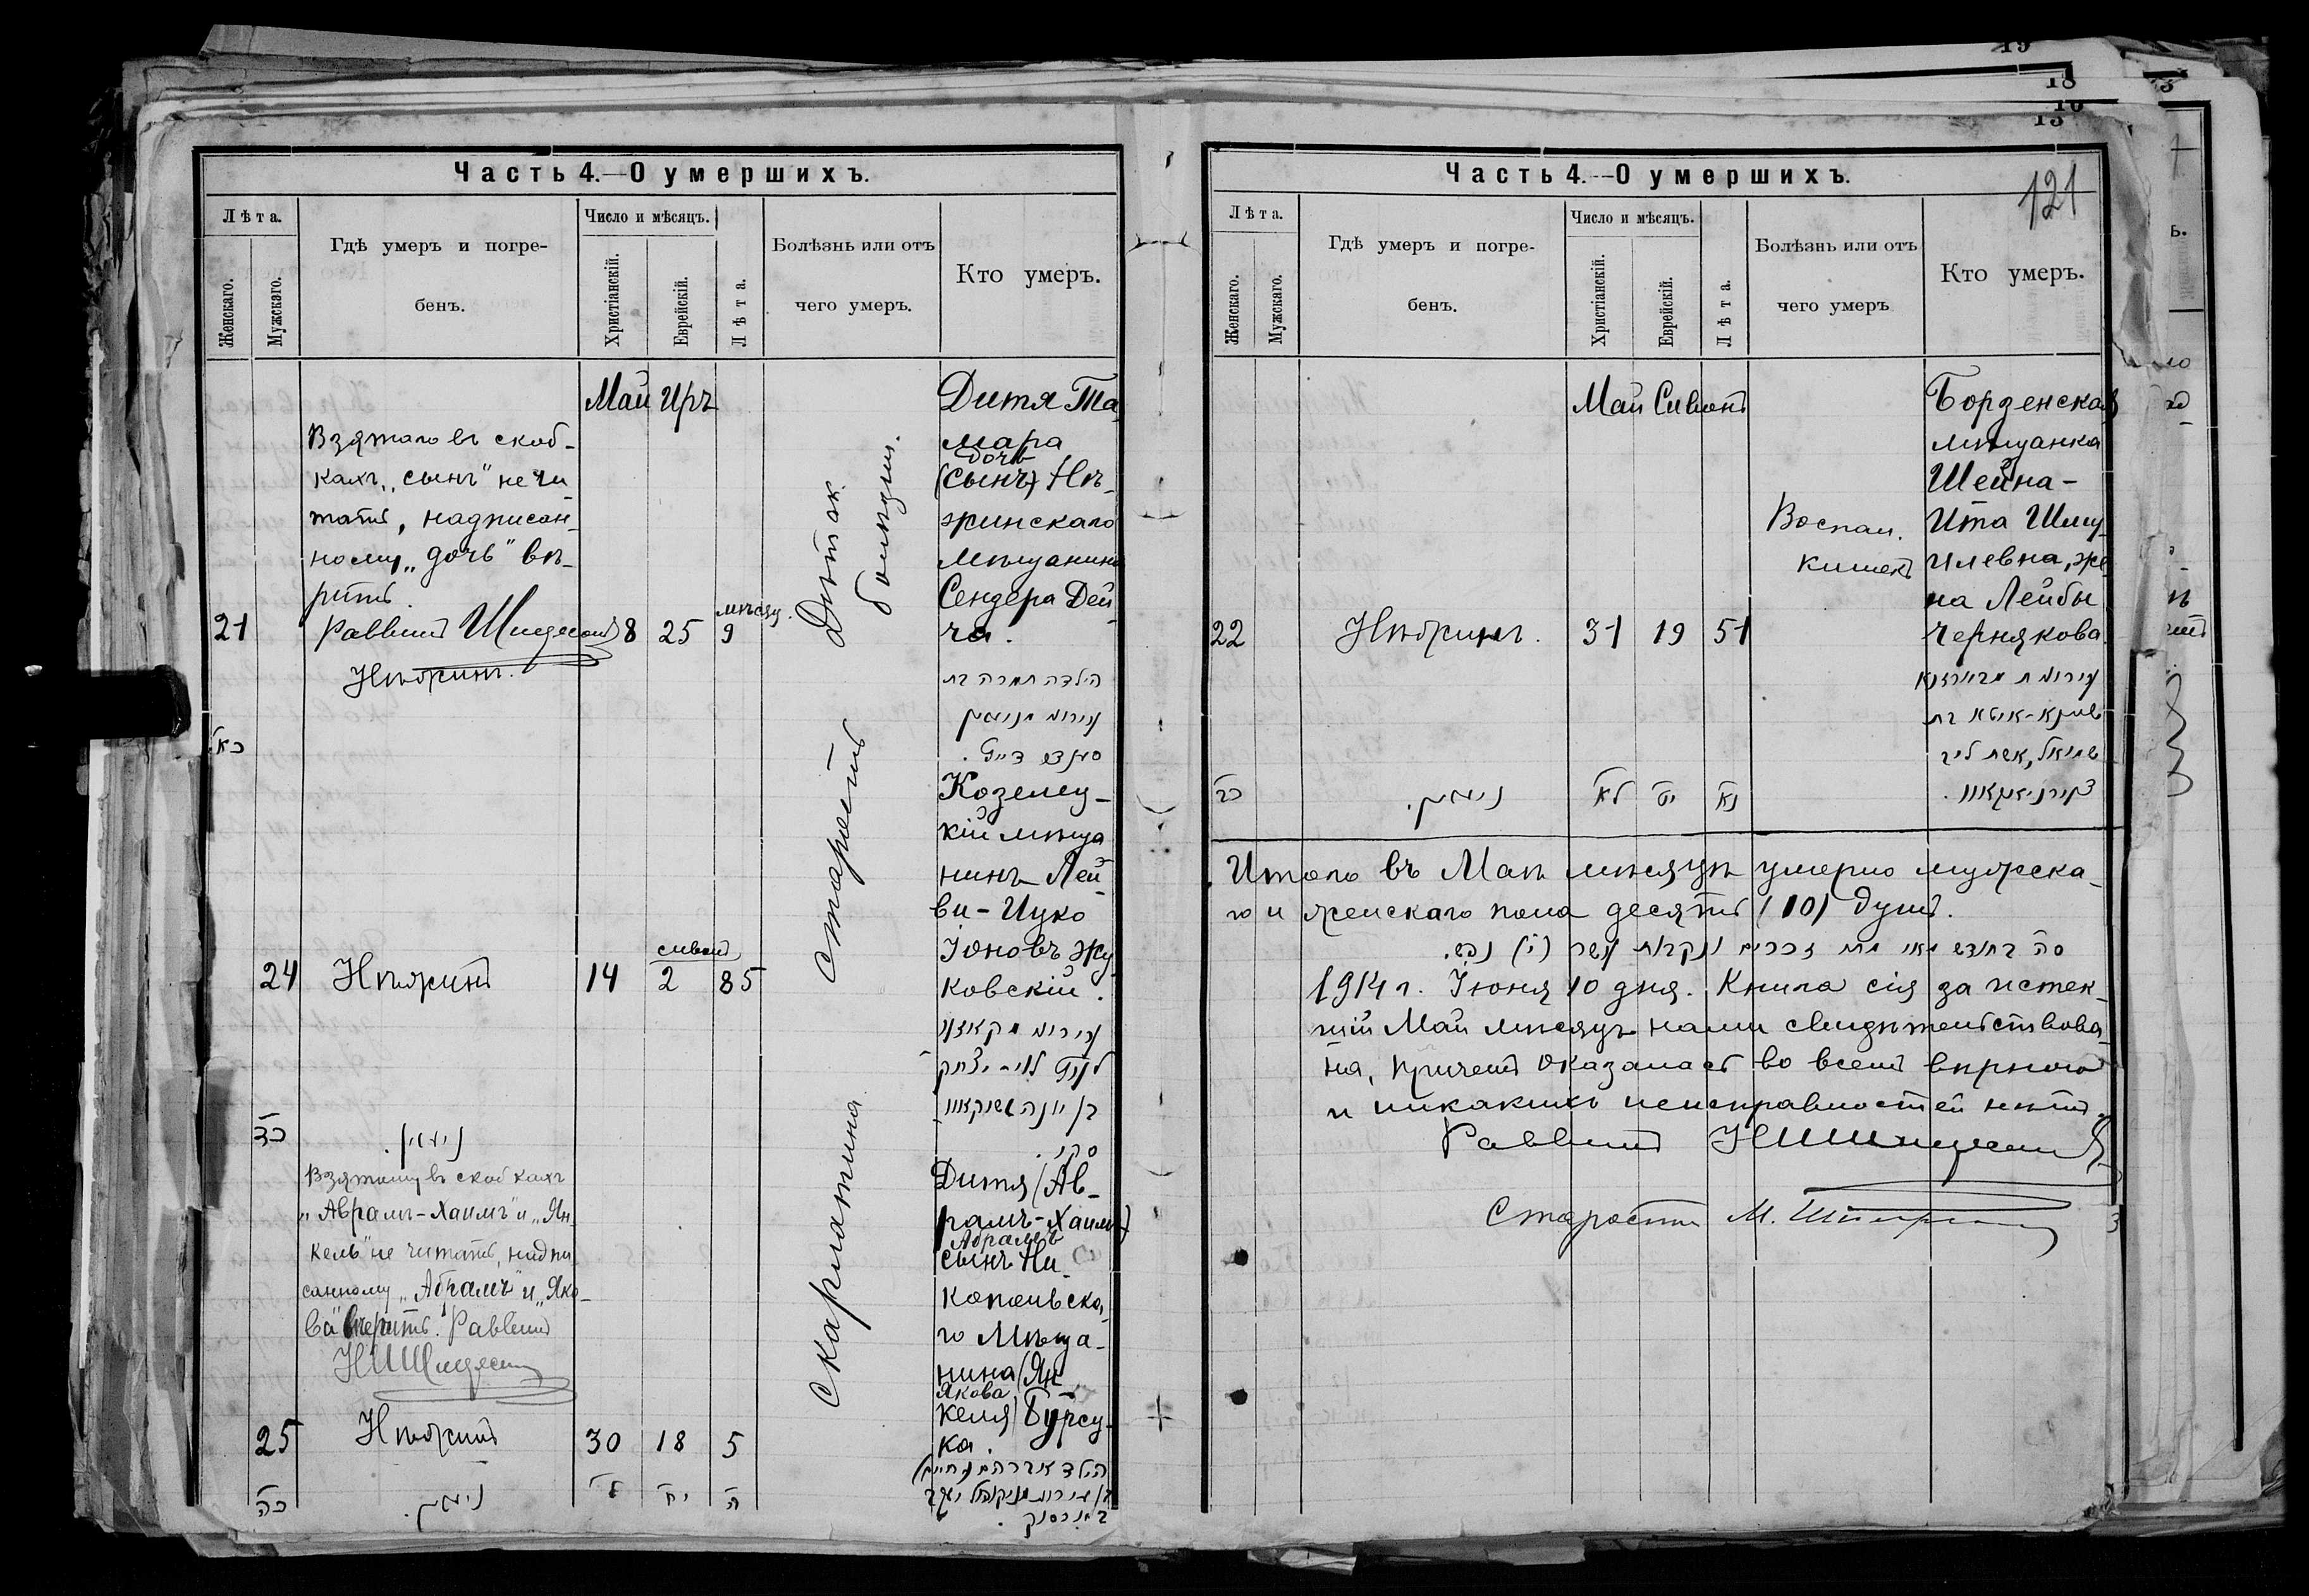 Часть 4.—О умершихъ.
Лѣта.
Женскаго.
Мужскаго.
Гдѣ умеръ и погре-
бенъ.
Число и мѣсяцъ.
Христіанскій.
Еврейскій.
Лѣта.
Болѣзнь или отъ
чего умеръ.
Кто умеръ.
Май Иръ
Взятаго въ скоб-
кахъ „сынъ" не чи-
тать, надписан-
ному „дочь" вѣ-
рить.
Раввинъ
21
Нѣжинъ.
8 25
мѣсяц.
9
Дѣтск.
болѣзни.
Дитя Та
мара
дочь
(сынъ) Нѣ-
жинскаго
мѣщанина
Сендера Дей
ча.
הילדה תמרה בת
כא
24 Нѣжинъ 14
сивонъ
2 85
старость
Козелец-
кій мѣща
нинъ Лей
ви-Ицко
Іоновъ Жу
ковскій.
כד
Взятому въ скобкахъ
„Аврамъ-Хаимъ" и „Ян-
кель" не читать, надпи
санному „Абрамъ" и „Яко-
ва" вѣрить. Раввинъ
25 Нѣжинъ 30 18 5
Скарлатина
Дитя (Ав-
рамъ-Хаимъ)
Абрамъ
сынъ Ни-
копольска,
го Мѣща-
нина (Ян
Якова
келя) Бурсу-
ка.
כה ל יח ה
Часть 4.—О умершихъ.
121
Лѣта.
Женскаго.
Мужскаго.
Гдѣ умеръ и погре-
бенъ.
Число и мѣсяцъ.
Христіанскій.
Еврейскій.
Лѣта.
Болѣзнь или отъ
чего умеръ
Кто умеръ.
Май Сивонъ
22 Нѣжинъ. 31 19 51
Воспал.
кишекъ
Борзенская
мѣщанка
Шейна-
Ита Шму
илевна, же
на Лейбы
Чернякова.
שמואל, אשת ליב
כב לא יט נא
Итого въ Маѣ мѣсяцѣ умерло мужска-
го и женскаго пола десять (10) душъ.
1914 г. Іюня 10 дня. Книга сія за истек-
шій Май мѣсяцъ нами свидѣтельствова-
на, причемъ оказалась во всемъ вѣрною
и никакихъ неисправностей нѣтъ.
Раввинъ
Староста М.